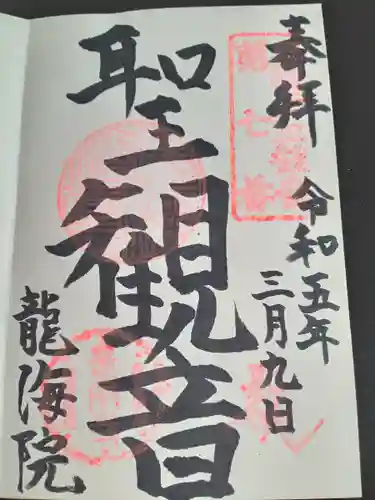 奉拝
令和五年
三月九日
聖観音
龍海院